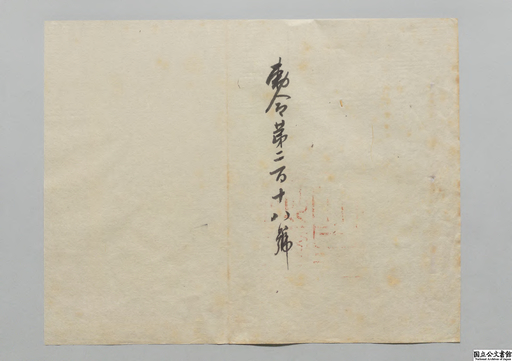 勅令第二百十八號
国立公文書館
National Archives of Japan